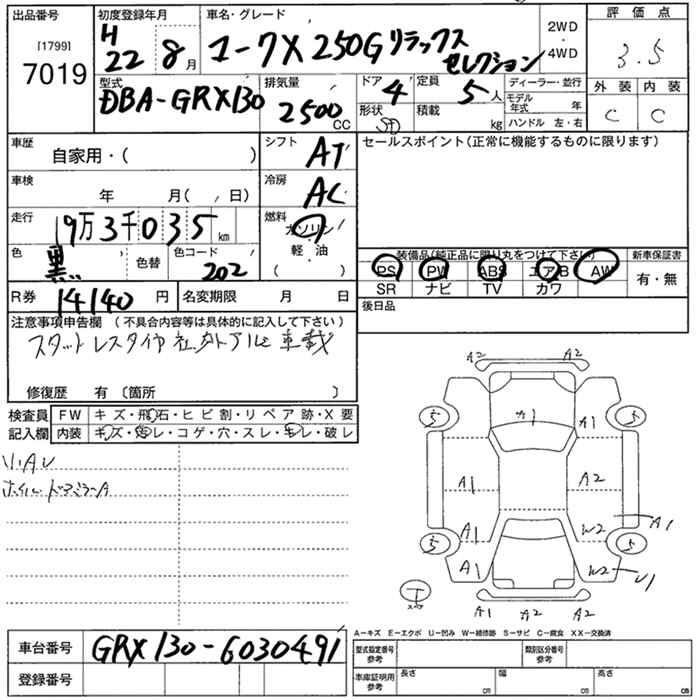 出品番号 [1799] 7019
初度登録年月 H22年8月
車名・グレード マークX 250G リラックスセレクション
2WD・4WD
評価点 3.5
外装 C 内装 C
型式 DBA-GRX130
排気量 2500 CC
ドア 4 形状 SD
定員 5人 積載 kg
ディーラー・並行
モデル年式 年
ハンドル 左・右
車歴 自家用・( )
シフト AT
セールスポイント(正常に機能するものに限ります)
車検 年 月( 日)
冷房 AC
走行 9万3千035km
燃料 ガソリン 軽・油 ( )
色 黒 色替 色コード 202
装備品(純正品に限り丸をつけて下さい) 新車保証書
PS PW ABS エアB AW 有・無
SR ナビ TV カワ
R券 14140円 名変期限 月 日
後日品
注意事項申告欄 (不具合内容等は具体的に記入して下さい)
スタッドレスタイヤ社外アルミ車載
修復歴 有 〔箇所 〕
検査員記入欄
FW キズ・飛石・ヒビ割・リペア跡・X要
内装 キズ・汚レ・コゲ・穴・スレ・キレ・破レ
小AU
ホイル ドアミラーA
A2 A2
5 A1 A1 5
A1 A2
A1 W2 A1
5 5
A1 W2 U1
T
A1 A2 A2
A－キズ E－エクボ U－凹み W－補修跡 S－サビ C－腐食 XX－交換済
車台番号 GRX130-6030491
登録番号
型式指定番号 参考 類別区分番号
車庫証明用 参考 長さ cm 幅 cm 高さ cm